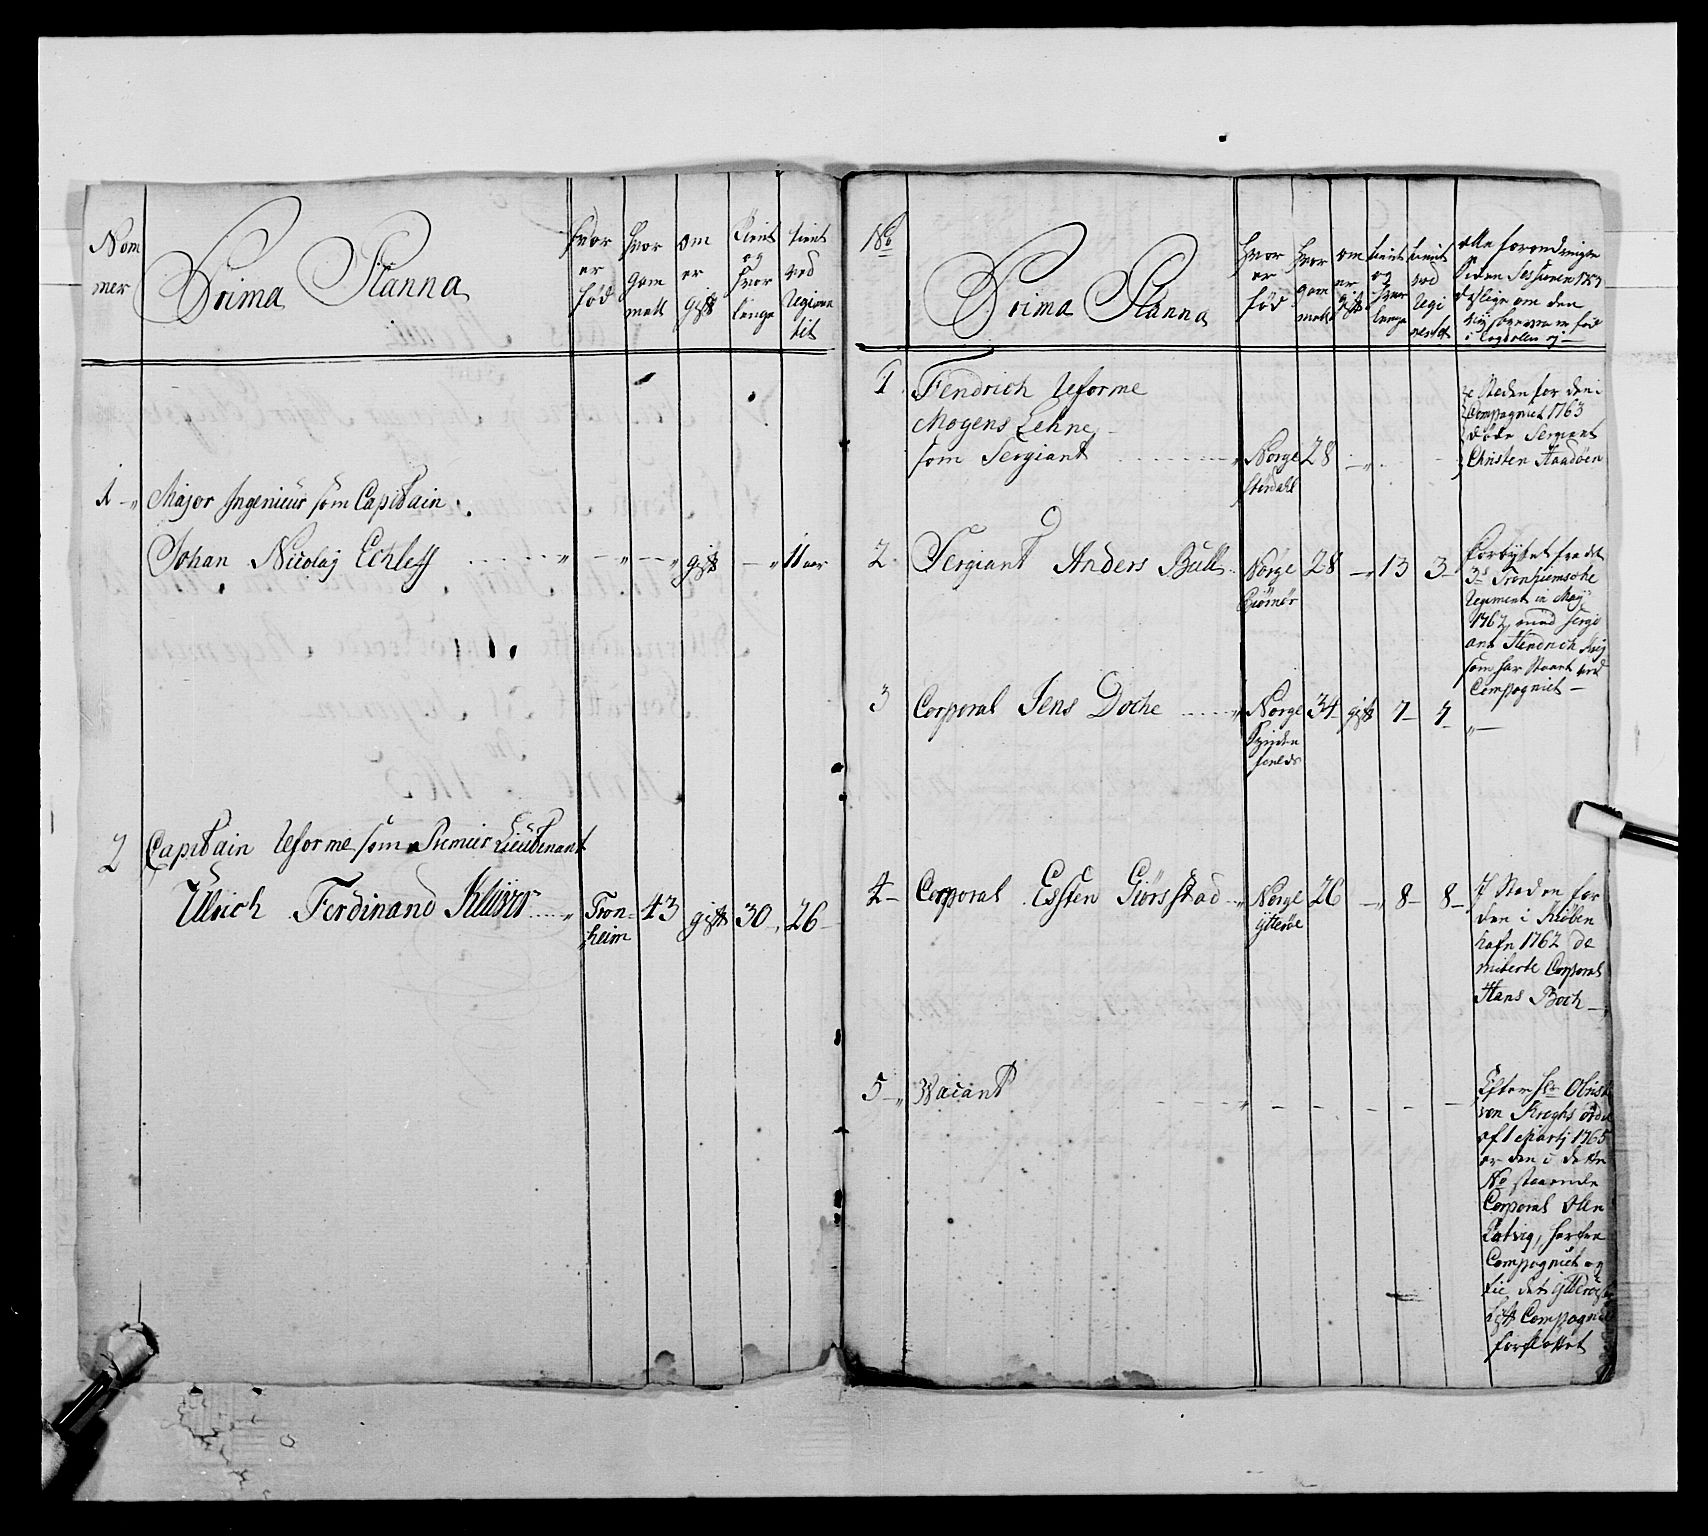 Nom
mer
Prima Planna
hvor
er
fød
hvor
gam
mell
om
er
gift
tient
og
hvor
lenge
tient
ved
Regimen
tit
1 Major Ingenieur som Capitain
Johan Nicolaj Echleff gift 11 aar
2 Capitain Reforme som Premier Lieutenant
Ulrich Ferdinand Klüver Tron- 43 gift 30 26
heim
No
Prima Planna
hvor
er
fød
hvor
gam
mell
om
er
gift
tient
og
hvor
lenge
tient
ved
Regi
mentet
alle forandringer
siden Sessionen
deslige om den
1 Fendrich Reforme
Mogens Lehne
som Sergiant Norge 28
Størdahl
i Steden for den i
Compagniet 1763
døde Sergiant
Christen Haadøen
2 Sergiant Anders Bull Norge 28 13 3
Biørnør
forbyttet fra det
3de Tronhiemske
Regiment in Maÿ
1762 med Sergi
ant Hendrich
som har staaet ved
Compagniet
3 Corporal Jens Doche Norge 34 gift 7 7
Synden
fields
4 Corporal Essten Giørsstad Norge 26 8 8
Ytterøe
I Steden for
den i Kiøben
hafn 1762 de
miterte Corporal
Hans Boch
5 Vacant
Efter Hr Obrist
von Kroghs ordre
af 1 Martj 1765
er den i dette
No staaende
Corporal Olen
Ratvig, her fra
Compagniet og
til det Ytterøe
Compagnie
forfløttet